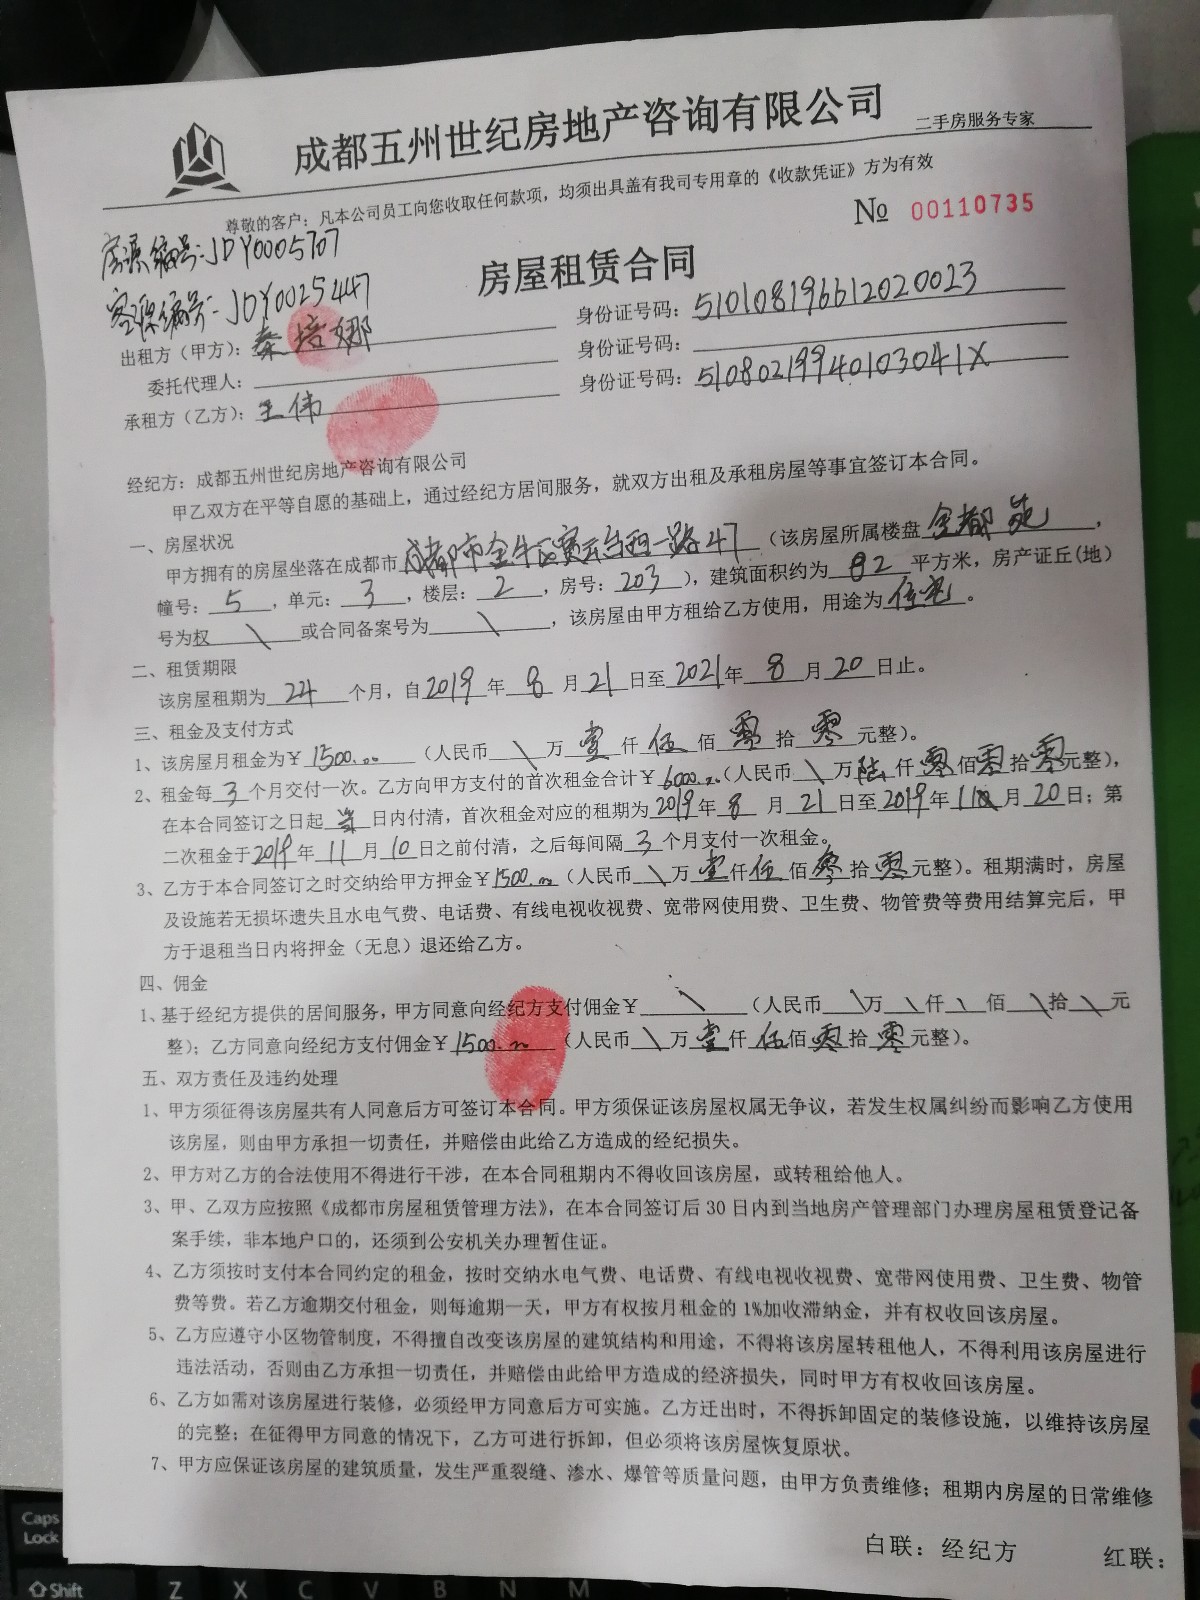 成都五州世纪房地产咨询有限公司
二手房服务专家
尊敬的客户：凡本公司员工向您收取任何款项，均须出具盖有我司专用章的《收款凭证》方为有效
№ 00110735
房源编号：JDY0005707
房屋租赁合同
客源编号：JDY0025447
出租方（甲方）：秦培娜 身份证号码：510108196612020023
委托代理人： 身份证号码：
承租方（乙方）：王伟 身份证号码：51080219940103041X
经纪方：成都五州世纪房地产咨询有限公司
甲乙双方在平等自愿的基础上，通过经纪方居间服务，就双方出租及承租房屋等事宜签订本合同。
一、房屋状况
甲方拥有的房屋坐落在成都市成都市金牛区赛云台西一路47（该房屋所属楼盘金都苑，
幢号：5，单元：3，楼层：2，房号：203），建筑面积约为82平方米，房产证丘(地)
号为权\或合同备案号为\，该房屋由甲方租给乙方使用，用途为住宅。
二、租赁期限
该房屋租期为24个月，自2019年8月21日至2021年8月20日止。
三、租金及支付方式
1、该房屋月租金为￥1500.00（人民币\万壹仟伍佰零拾零元整）。
2、租金每3个月交付一次。乙方向甲方支付的首次租金合计￥6000.00（人民币\万陆仟零佰零拾零元整），
在本合同签订之日起当日内付清，首次租金对应的租期为2019年8月21日至2019年11月20日；第
二次租金于2019年11月10日之前付清，之后每间隔3个月支付一次租金。
3、乙方于本合同签订之时交纳给甲方押金￥1500.00（人民币\万壹仟伍佰零拾零元整）。租期满时，房屋
及设施若无损坏遗失且水电气费、电话费、有线电视收视费、宽带网使用费、卫生费、物管费等费用结算完后，甲
方于退租当日内将押金（无息）退还给乙方。
四、佣金
1、基于经纪方提供的居间服务，甲方同意向经纪方支付佣金￥\（人民币\万\仟\佰\拾\元
整）；乙方同意向经纪方支付佣金￥1500.00（人民币\万壹仟伍佰零拾零元整）。
五、双方责任及违约处理
1、甲方须征得该房屋共有人同意后方可签订本合同。甲方须保证该房屋权属无争议，若发生权属纠纷而影响乙方使用
该房屋，则由甲方承担一切责任，并赔偿由此给乙方造成的经纪损失。
2、甲方对乙方的合法使用不得进行干涉，在本合同租期内不得收回该房屋，或转租给他人。
3、甲、乙双方应按照《成都市房屋租赁管理方法》，在本合同签订后30日内到当地房产管理部门办理房屋租赁登记备
案手续，非本地户口的，还须到公安机关办理暂住证。
4、乙方须按时支付本合同约定的租金，按时交纳水电气费、电话费、有线电视收视费、宽带网使用费、卫生费、物管
费等费。若乙方逾期交付租金，则每逾期一天，甲方有权按月租金的1%加收滞纳金，并有权收回该房屋。
5、乙方应遵守小区物管制度，不得擅自改变该房屋的建筑结构和用途，不得将该房屋转租他人，不得利用该房屋进行
违法活动，否则由乙方承担一切责任，并赔偿由此给甲方造成的经济损失，同时甲方有权收回该房屋。
6、乙方如需对该房屋进行装修，必须经甲方同意后方可实施。乙方迁出时，不得拆卸固定的装修设施，以维持该房屋
的完整；在征得甲方同意的情况下，乙方可进行拆卸，但必须将该房屋恢复原状。
7、甲方应保证该房屋的建筑质量，发生严重裂缝、渗水、爆管等质量问题，由甲方负责维修；租期内房屋的日常维修
白联：经纪方 红联：
Caps Lock
Shift Z X C V B N M